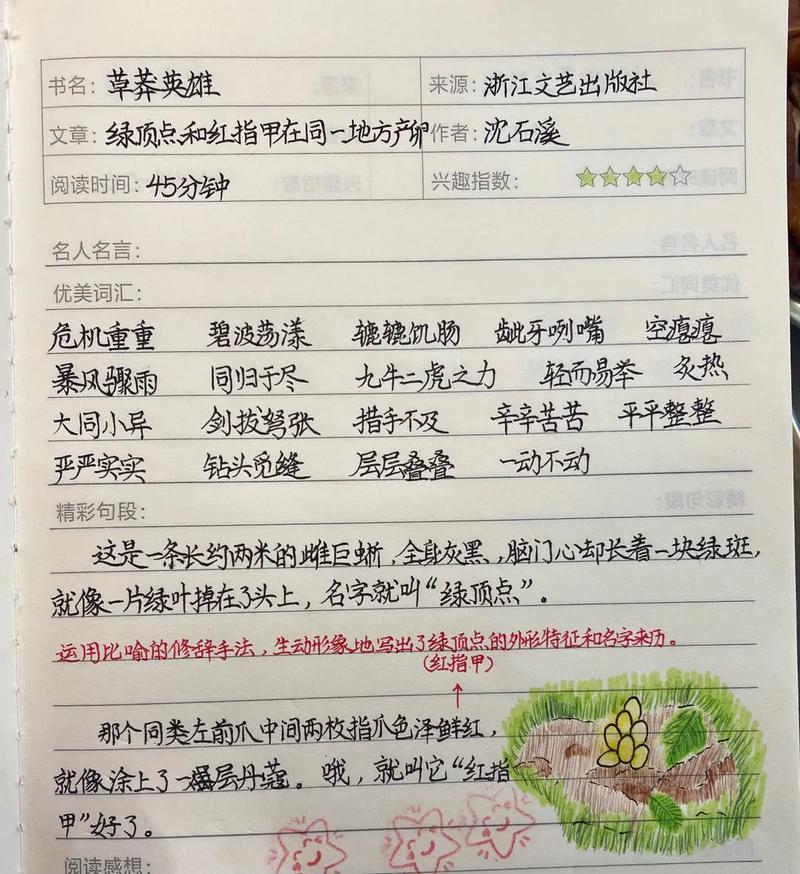 书名：草莽英雄 来源：浙江文艺出版社
文章：绿顶点和红指甲在同一地方产卵 作者：沈石溪
阅读时间：45分钟 兴趣指数：
名人名言：
优美词汇：
危机重重 碧波荡漾 辘辘饥肠 龇牙咧嘴 空瘪瘪
暴风骤雨 同归于尽 九牛二虎之力 轻而易举 炙热
大同小异 剑拔弩张 措手不及 辛辛苦苦 平平整整
严严实实 钻头觅缝 层层叠叠 一动不动
精彩句段：
这是一条长约两米的雌巨蜥，全身灰黑，脑门心却长着一块绿斑，
就像一片绿叶掉在了头上，名字就叫“绿顶点”。
运用比喻的修辞手法，生动形象地写出了绿顶点的外形特征和名字来历。
（红指甲）
那个同类左前爪中间两枚指爪色泽鲜红，
就像涂上了一层丹蔻。哦，就叫它“红指
甲”好了。
阅读感想：